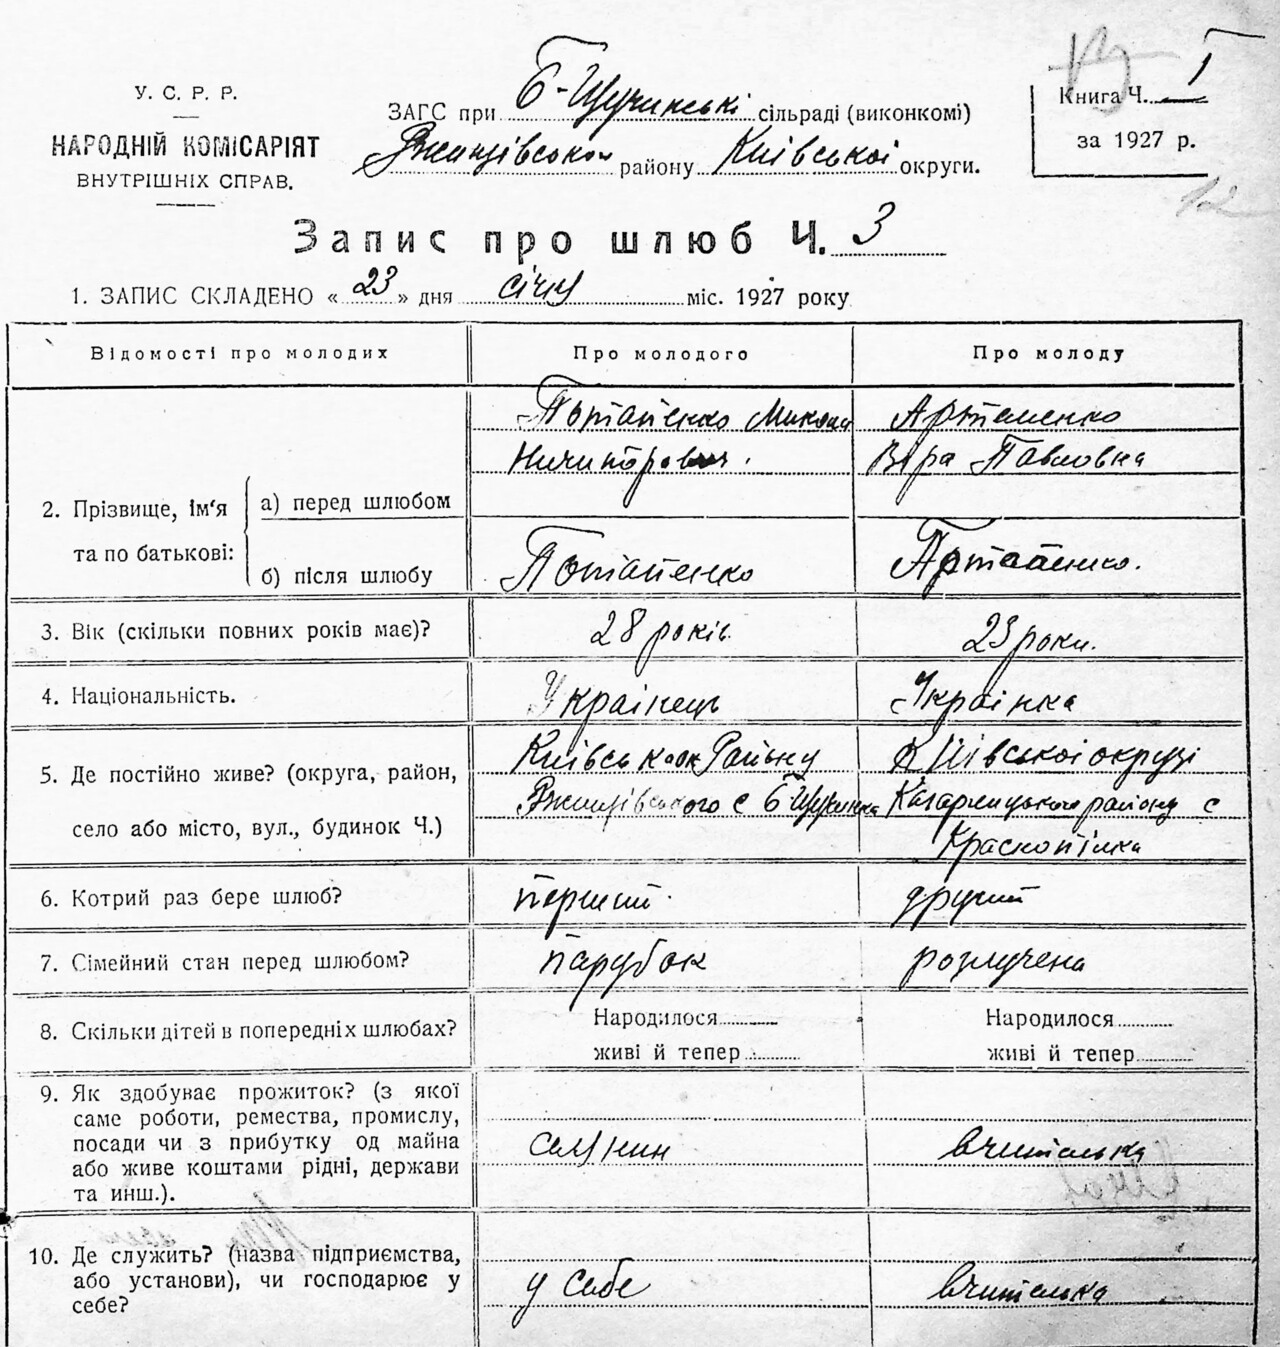 У. С. Р. Р.
НАРОДНІЙ КОМІСАРІЯТ
ВНУТРІШНІХ СПРАВ.
ЗАГС при Б-Щучинські сільраді (виконкомі)
Ржищівськом району Київської округи.
Книга Ч. I
за 1927 р.
12
Запис про шлюб Ч. 3
1. ЗАПИС СКЛАДЕНО « 23 » дня січня міс. 1927 року
Відомості про молодих
Про молодого
Про молоду
2. Прізвище, ім'я та по батькові:
а) перед шлюбом
Потапенко Микола
Ничипорович.
Артеменко
Віра Павловна
б) після шлюбу
Потапенко
3. Вік (скільки повних років має)?
28 років.
23 роки.
4. Національність.
Українець
Українка
5. Де постійно живе? (округа, район,
село або місто, вул., будинок Ч.)
Київськ ок Району
Ржищівського с Б-Щучинка
Київської округі
Кагарлицького району с
Краснопілка
6. Котрий раз бере шлюб?
перший.
другий
7. Сімейний стан перед шлюбом?
парубок
розлучена
8. Скільки дітей в попередніх шлюбах?
Народилося
живі й тепер
Народилося
живі й тепер
9. Як здобуває прожиток? (з якої
саме роботи, ремества, промислу,
посади чи з прибутку од майна
або живе коштами рідні, держави
та инш.).
вчителька
10. Де служить? (назва підприємства,
або установи), чи господарює у
себе?
у себе
вчителька